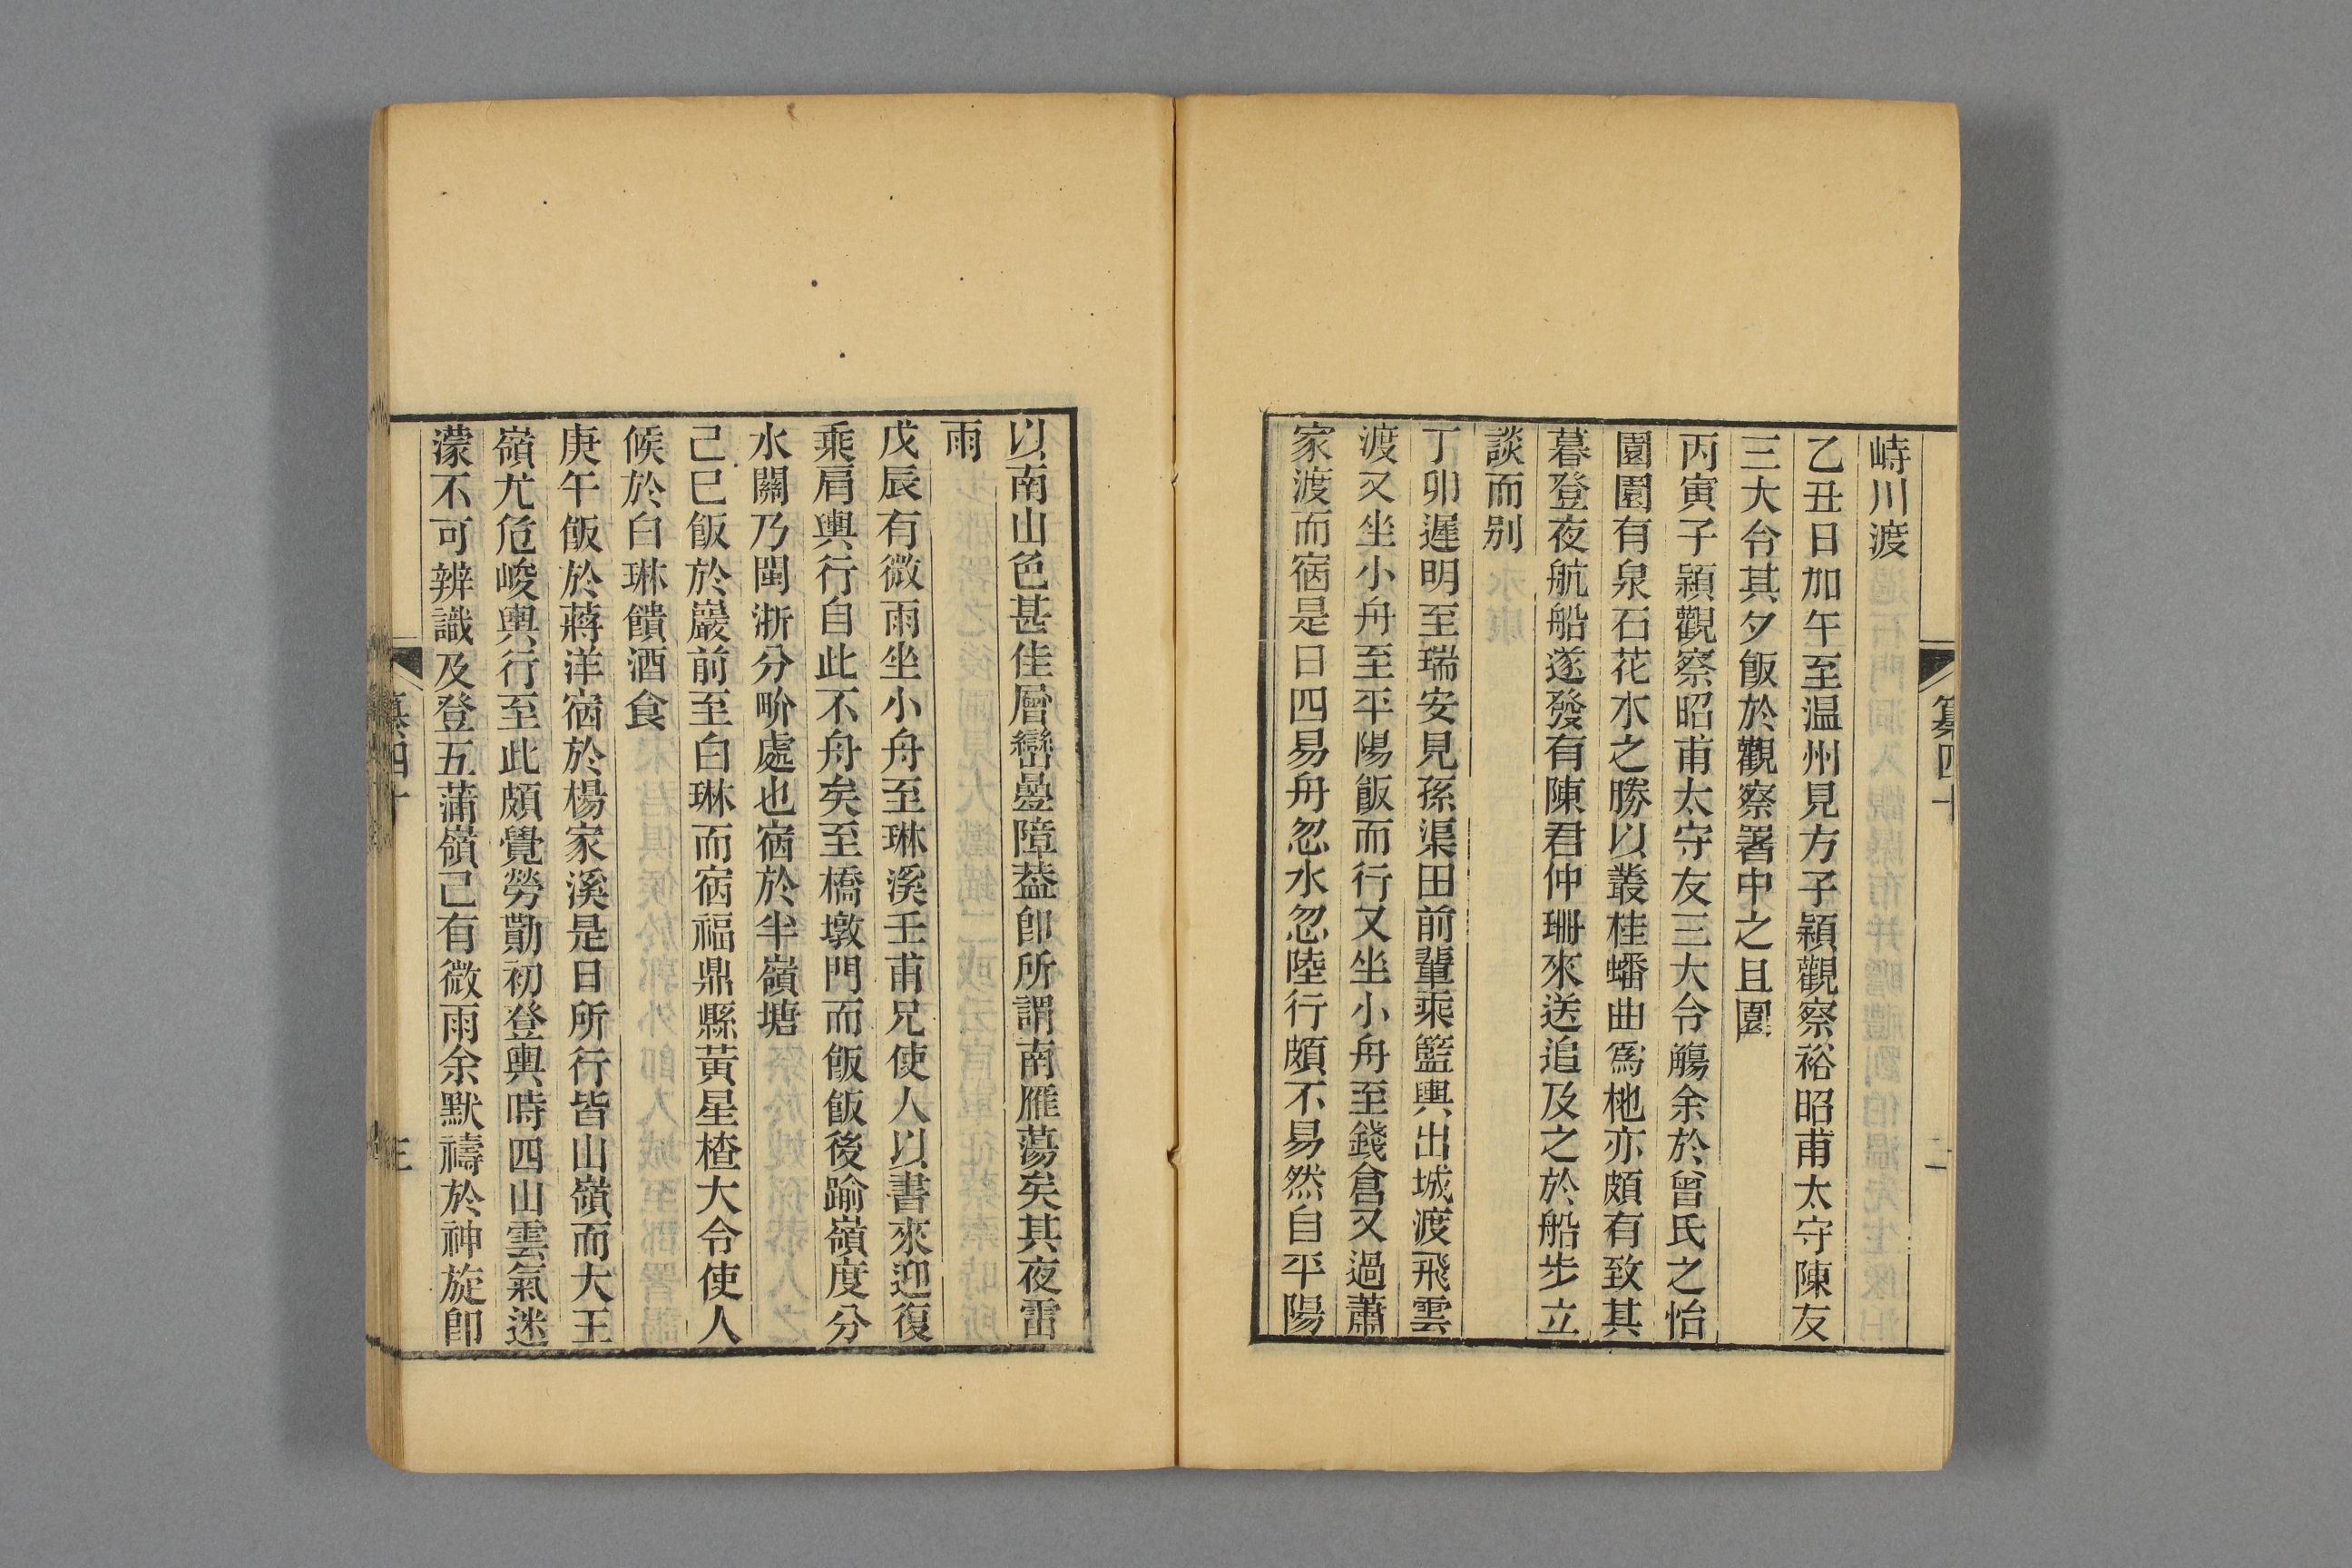 纂四十
二
峙川渡
乙丑日加午至温州見方子穎觀察裕昭甫太守陳友
三大令其夕飯於觀察署中之且園
丙寅子穎觀察昭甫太守友三大令觴余於曾氏之怡
園園有泉石花木之勝以叢桂蟠曲爲杝亦頗有致其
暮登夜航船遂發有陳君仲珊來送追及之於船步立
談而别
丁卯遲明至瑞安見孫渠田前輩乘籃輿出城渡飛雲
渡又坐小舟至平陽飯而行又坐小舟至錢倉又過蕭
家渡而宿是日四易舟忽水忽陸行頗不易然自平陽
以南山色甚佳層巒曡障葢卽所謂南雁蕩矣其夜雷
雨
戊辰有微雨坐小舟至琳溪壬甫兄使人以書來迎復
乘肩輿行自此不舟矣至橋墩門而飯飯後踰嶺度分
水關乃閩浙分畍處也宿於半嶺塘
己巳飯於巖前至白琳而宿福鼎縣黃星楂大令使人
候於白琳饋酒食
庚午飯於蔣洋宿於楊家溪是日所行皆山嶺而大王
嶺尤危峻輿行至此頗覺勞勩初登輿時四山雲氣迷
濛不可辨識及登五蒲嶺己有微雨余默禱於神旋卽
纂四十
三